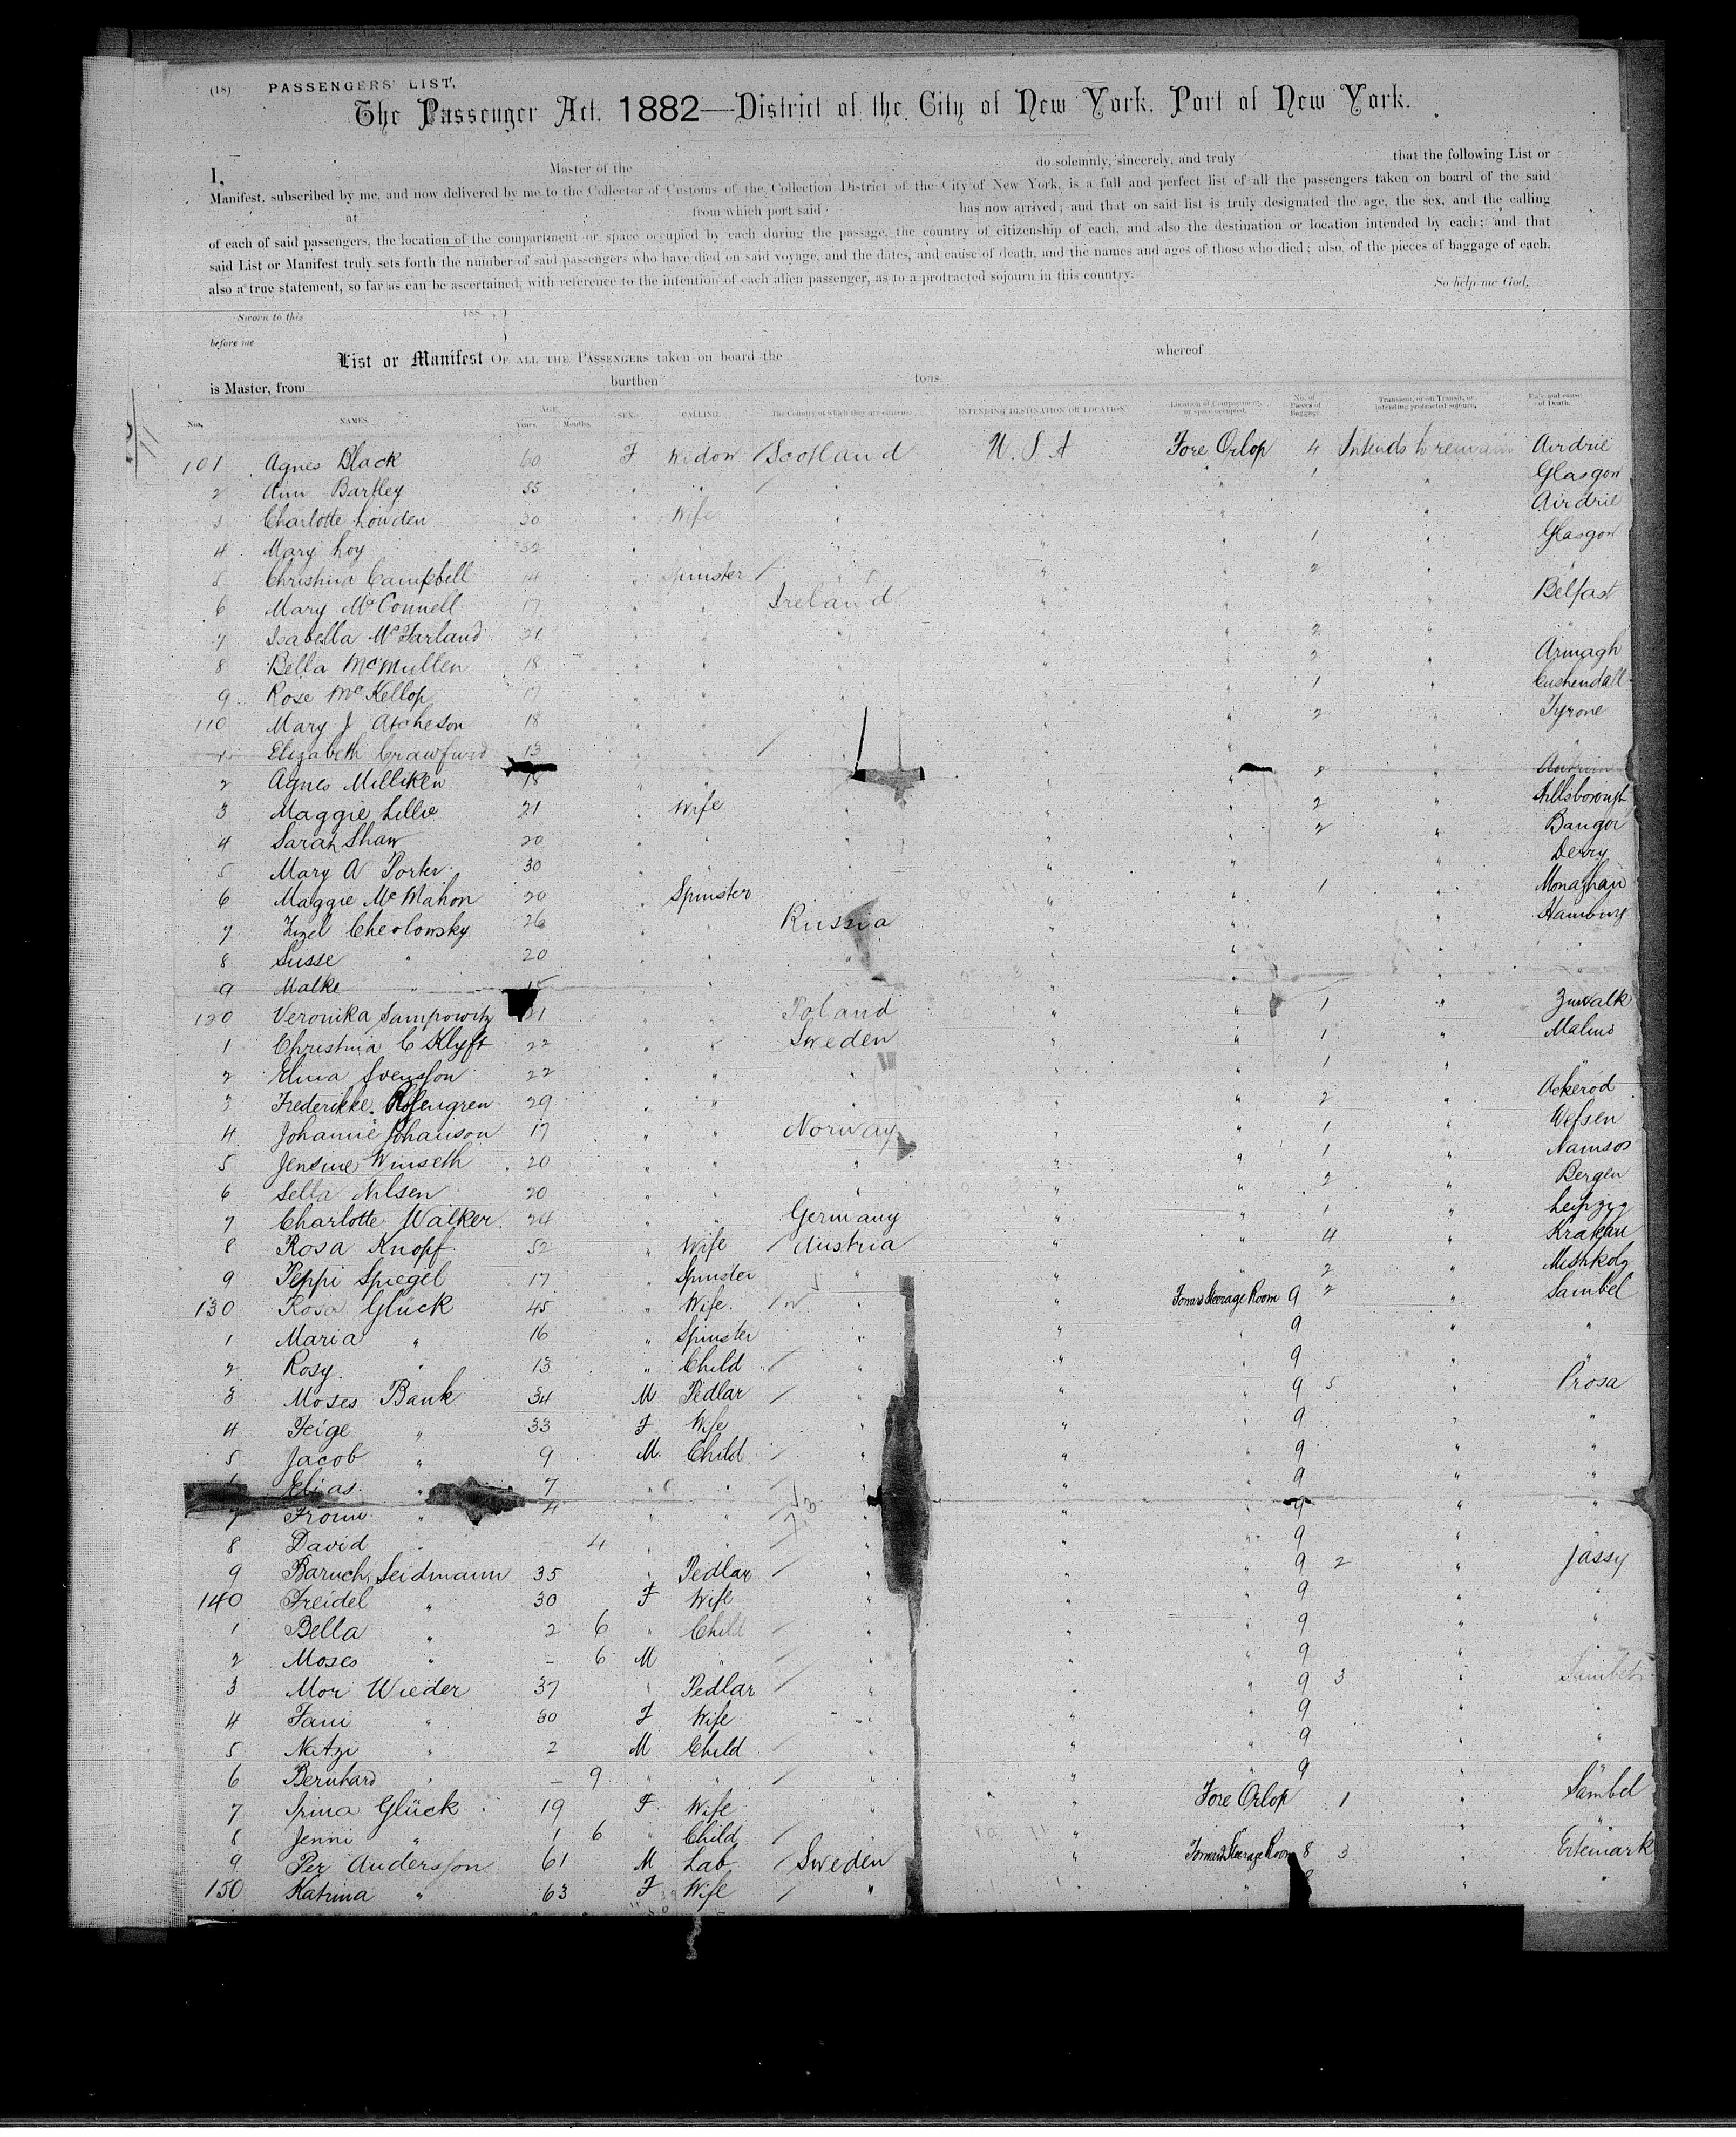 (18) PASSENGERS' LIST.
The Passenger Act, 1882—District of the City of New York, Port of New York.
I, Master of the do solemnly, sincerely, and truly that the following List or
Manifest, subscribed by me, and now delivered by me to the Collector of Customs of the Collection District of the City of New York, is a full and perfect list of all the passengers taken on board of the said
at from which port said has now arrived; and that on said list is truly designated the age, the sex, and the calling
of each of said passengers, the location of the compartment or space occupied by each during the passage, the country of citizenship of each, and also the destination or location intended by each; and that
said List or Manifest truly sets forth the number of said passengers who have died on said voyage, and the dates, and cause of death, and the names and ages of those who died; also, of the pieces of baggage of each,
also a true statement, so far as can be ascertained, with reference to the intention of each alien passenger, as to a protracted sojourn in this country. So help me God.
Sworn to this 188 ,
before me
List or Manifest OF ALL THE PASSENGERS taken on board the whereof
is Master, from burthen tons.
Nos. NAMES. AGE. Years. Months. SEX. CALLING. The Country of which they are citizens. INTENDING DESTINATION OR LOCATION. Location of Compartment, or space occupied. No. of Pieces of Baggage. Transient, or in Transit, or intending protracted sojourn. Date and cause of Death.
101 Agnes Black 60 F Widow Scotland U.S.A Fore Orlop 4 Intends to remain Airdrie
2 Ann Bartley 55 " " " " " 1 " Glasgow
3 Charlotte Lowden 30 " Wife " " " " Airdrie
4 Mary Loy 32 " " " " " 1 " Glasgow
5 Christina Campbell 14 " Spinster " " " 2 " "
6 Mary McConnell 17 " " Ireland " " " Belfast
7 Isabella McFarland 21 " " " " " 2 " "
8 Bella McMullen 18 " " " " " 2 " Armagh
9 Rose McKellop 17 " " " " " 1 " Cushendall
110 Mary J Atcheson 18 " " " " " 2 " Tyrone
1 Elizabeth Crawfurd 13 " " " " " " "
2 Agnes Milliken 18 " " " " " 2 " Antrim
3 Maggie Lillie 21 " Wife " " " 2 " Hillsborough
4 Sarah Shaw 20 " " " " " 2 " Bangor
5 Mary A Porter 30 " " " " " " Derry
6 Maggie McMahon 20 " Spinster " " " 1 " Monaghan
7 Cheolowsky 26 " " Russia " " " Hamburg
8 Susse " 20 " " " " " " "
9 Malke " 15 " " " " " "
120 Veronika Sampowitz 21 " " Poland " " 1 " Zuwalk
1 Christina C Klyft 22 " " Sweden " " 1 " Malmo
2 Svensson 22 " " " " " 1 " "
3 Frederikke Rosengren 29 " " " " " 2 " Ackerod
4 Johanne Johanson 17 " " Norway " " 1 " Wefsen
5 Jensine Winseth 20 " " " " " 1 " Namsos
6 Sella Nilsen 20 " " " " " 2 " Bergen
7 Charlotte Walker 24 " " Germany " " 1 " Leipzig
8 Rosa Knopf 52 " Wife Austria " " 4 " Krakau
9 Peppi Spiegel 17 " Spinster " " " 2 " Mishkolz
130 Rosa Glück 45 " Wife " " Forwd Steerage Room 9 2 " Sambel
1 Maria " 16 " Spinster " " " 9 " "
2 Rosy " 13 " Child " " " 9 " "
3 Moses Bank 34 M Pedlar " " " 9 5 " Prosa
4 Feige " 33 F Wife " " " 9 " "
5 Jacob " 9 M Child " " " 9 " "
6 Elias " 7 " " " " " 9 " "
7 Froim " 4 " " " " " 9 " "
8 David " - 4 " " " " " 9 " "
9 Baruch Seidmann 35 " Pedlar " " " 9 2 " Jassy
140 Freidel " 30 F Wife " " " 9 " "
1 Bella " 2 6 " Child " " " 9 " "
2 Moses " - 6 M " " " " 9 " "
3 Mor Wieder 37 " Pedlar " " " 9 3 " Sambel
4 Fani " 30 F Wife " " " 9 " "
5 Natzi " 2 M Child " " " 9 " "
6 Bernhard " - 9 " " " " " 9 " "
7 Irma Glück 19 F Wife " " Fore Orlop 1 " Sambel
8 Jenni " 1 6 " Child " " " "
9 Per Andersson 61 M Lab Sweden " Forward Steerage Room 8 3 " Ertemark
150 Katrina " 63 F Wife " " " " "